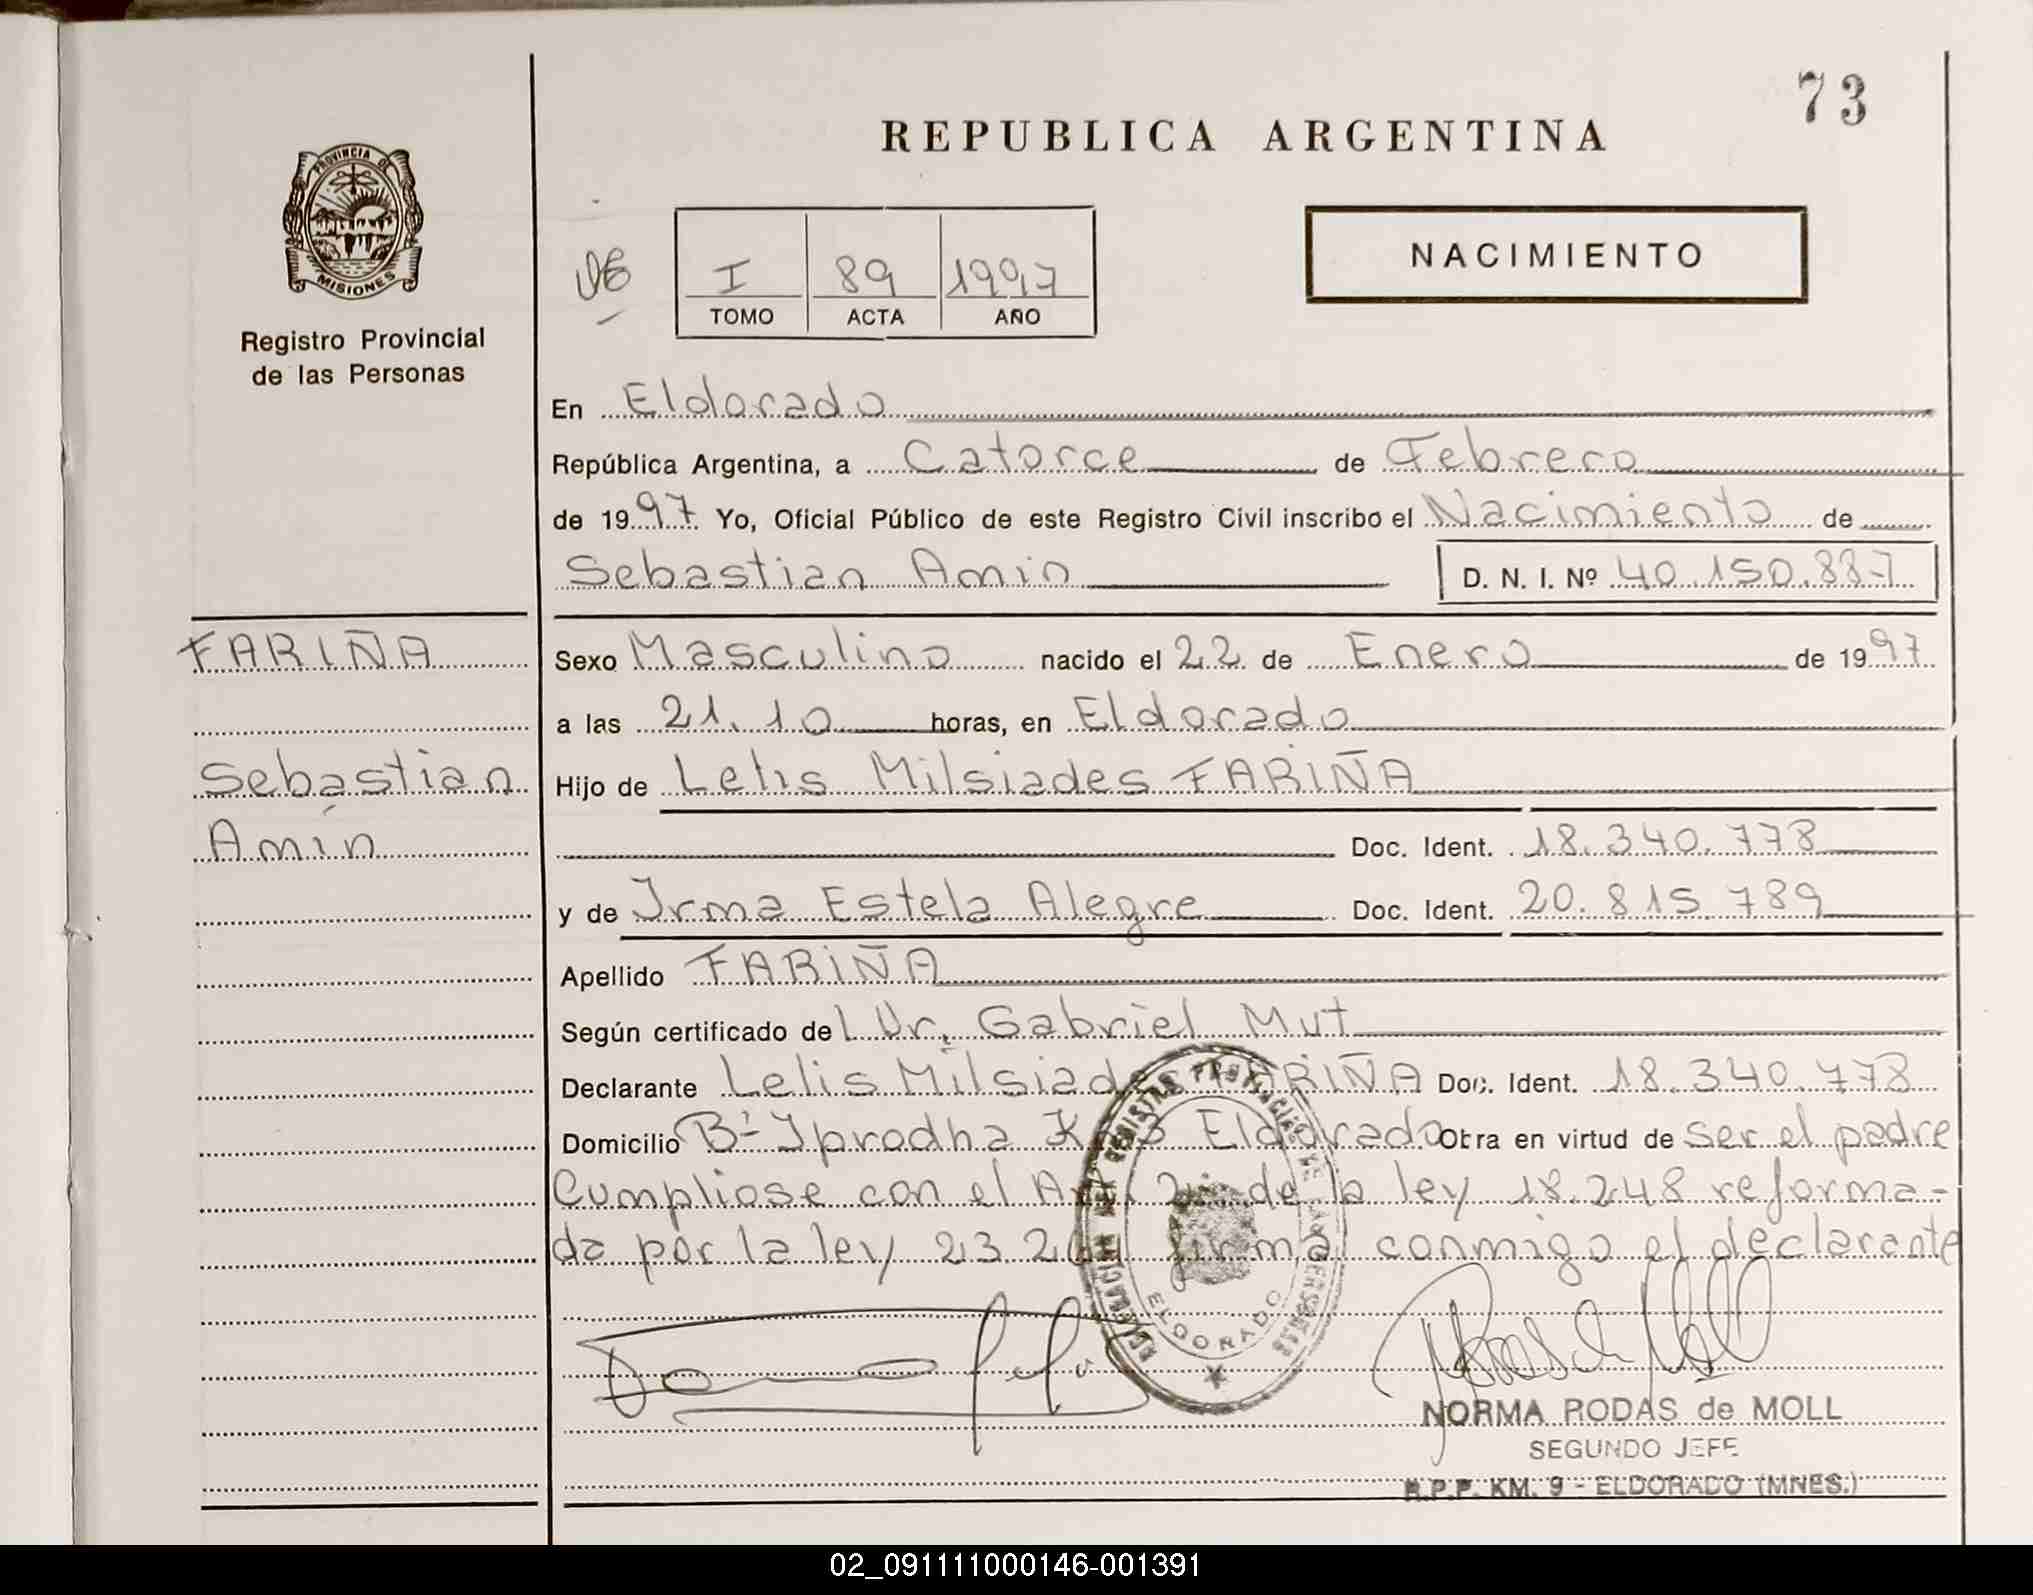 73
REPUBLICA ARGENTINA
PROVINCIA DE
MISIONES
Registro Provincial
de las Personas
I 89 1997
TOMO ACTA AÑO
NACIMIENTO
En Eldorado
República Argentina, a Catorce de Febrero
de 1997 Yo, Oficial Público de este Registro Civil inscribo el Nacimiento de
Sebastian Amin D. N. I. Nº 40.150.887
FARIÑA
Sebastian
Amín
Sexo Masculino nacido el 22 de Enero de 1997
a las 21.10 horas, en Eldorado
Hijo de Lelis Milsiades FARIÑA
Doc. Ident. 18.340.778
y de Irma Estela Alegre Doc. Ident. 20.815.789
Apellido FARIÑA
Según certificado del Dr. Gabriel Mut
Declarante Lelis Milsiades FARIÑA Doc. Ident. 18.340.778
Domicilio Bº Iprodha Eldorado Obra en virtud de ser el padre
Cumpliose con el Art de la ley 18.248 reforma-
da por la ley firma conmigo el declarante
ELDORADO
NORMA RODAS de MOLL
SEGUNDO JEFE
R.P.P. KM. 9 - ELDORADO (MNES.)
02_091111000146-001391